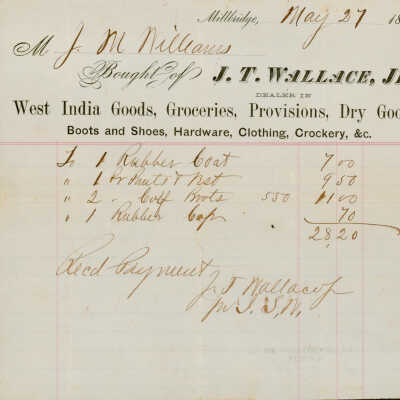 Millbridge, May 27 18
M J. M Williams
Bought of J. T. WALLACE, JR
DEALER IN
West India Goods, Groceries, Provisions, Dry Goo
Boots and Shoes, Hardware, Clothing, Crockery, &c.
To 1 Rubber Coat 7 00
" 1 Pr Pants & Vest 9 50
" 2 " Calf Boots 550 11 00
" 1 Rubber Cap 70
28,20
Recd Payment
J T Wallace Jr